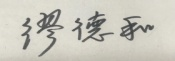 缪德和